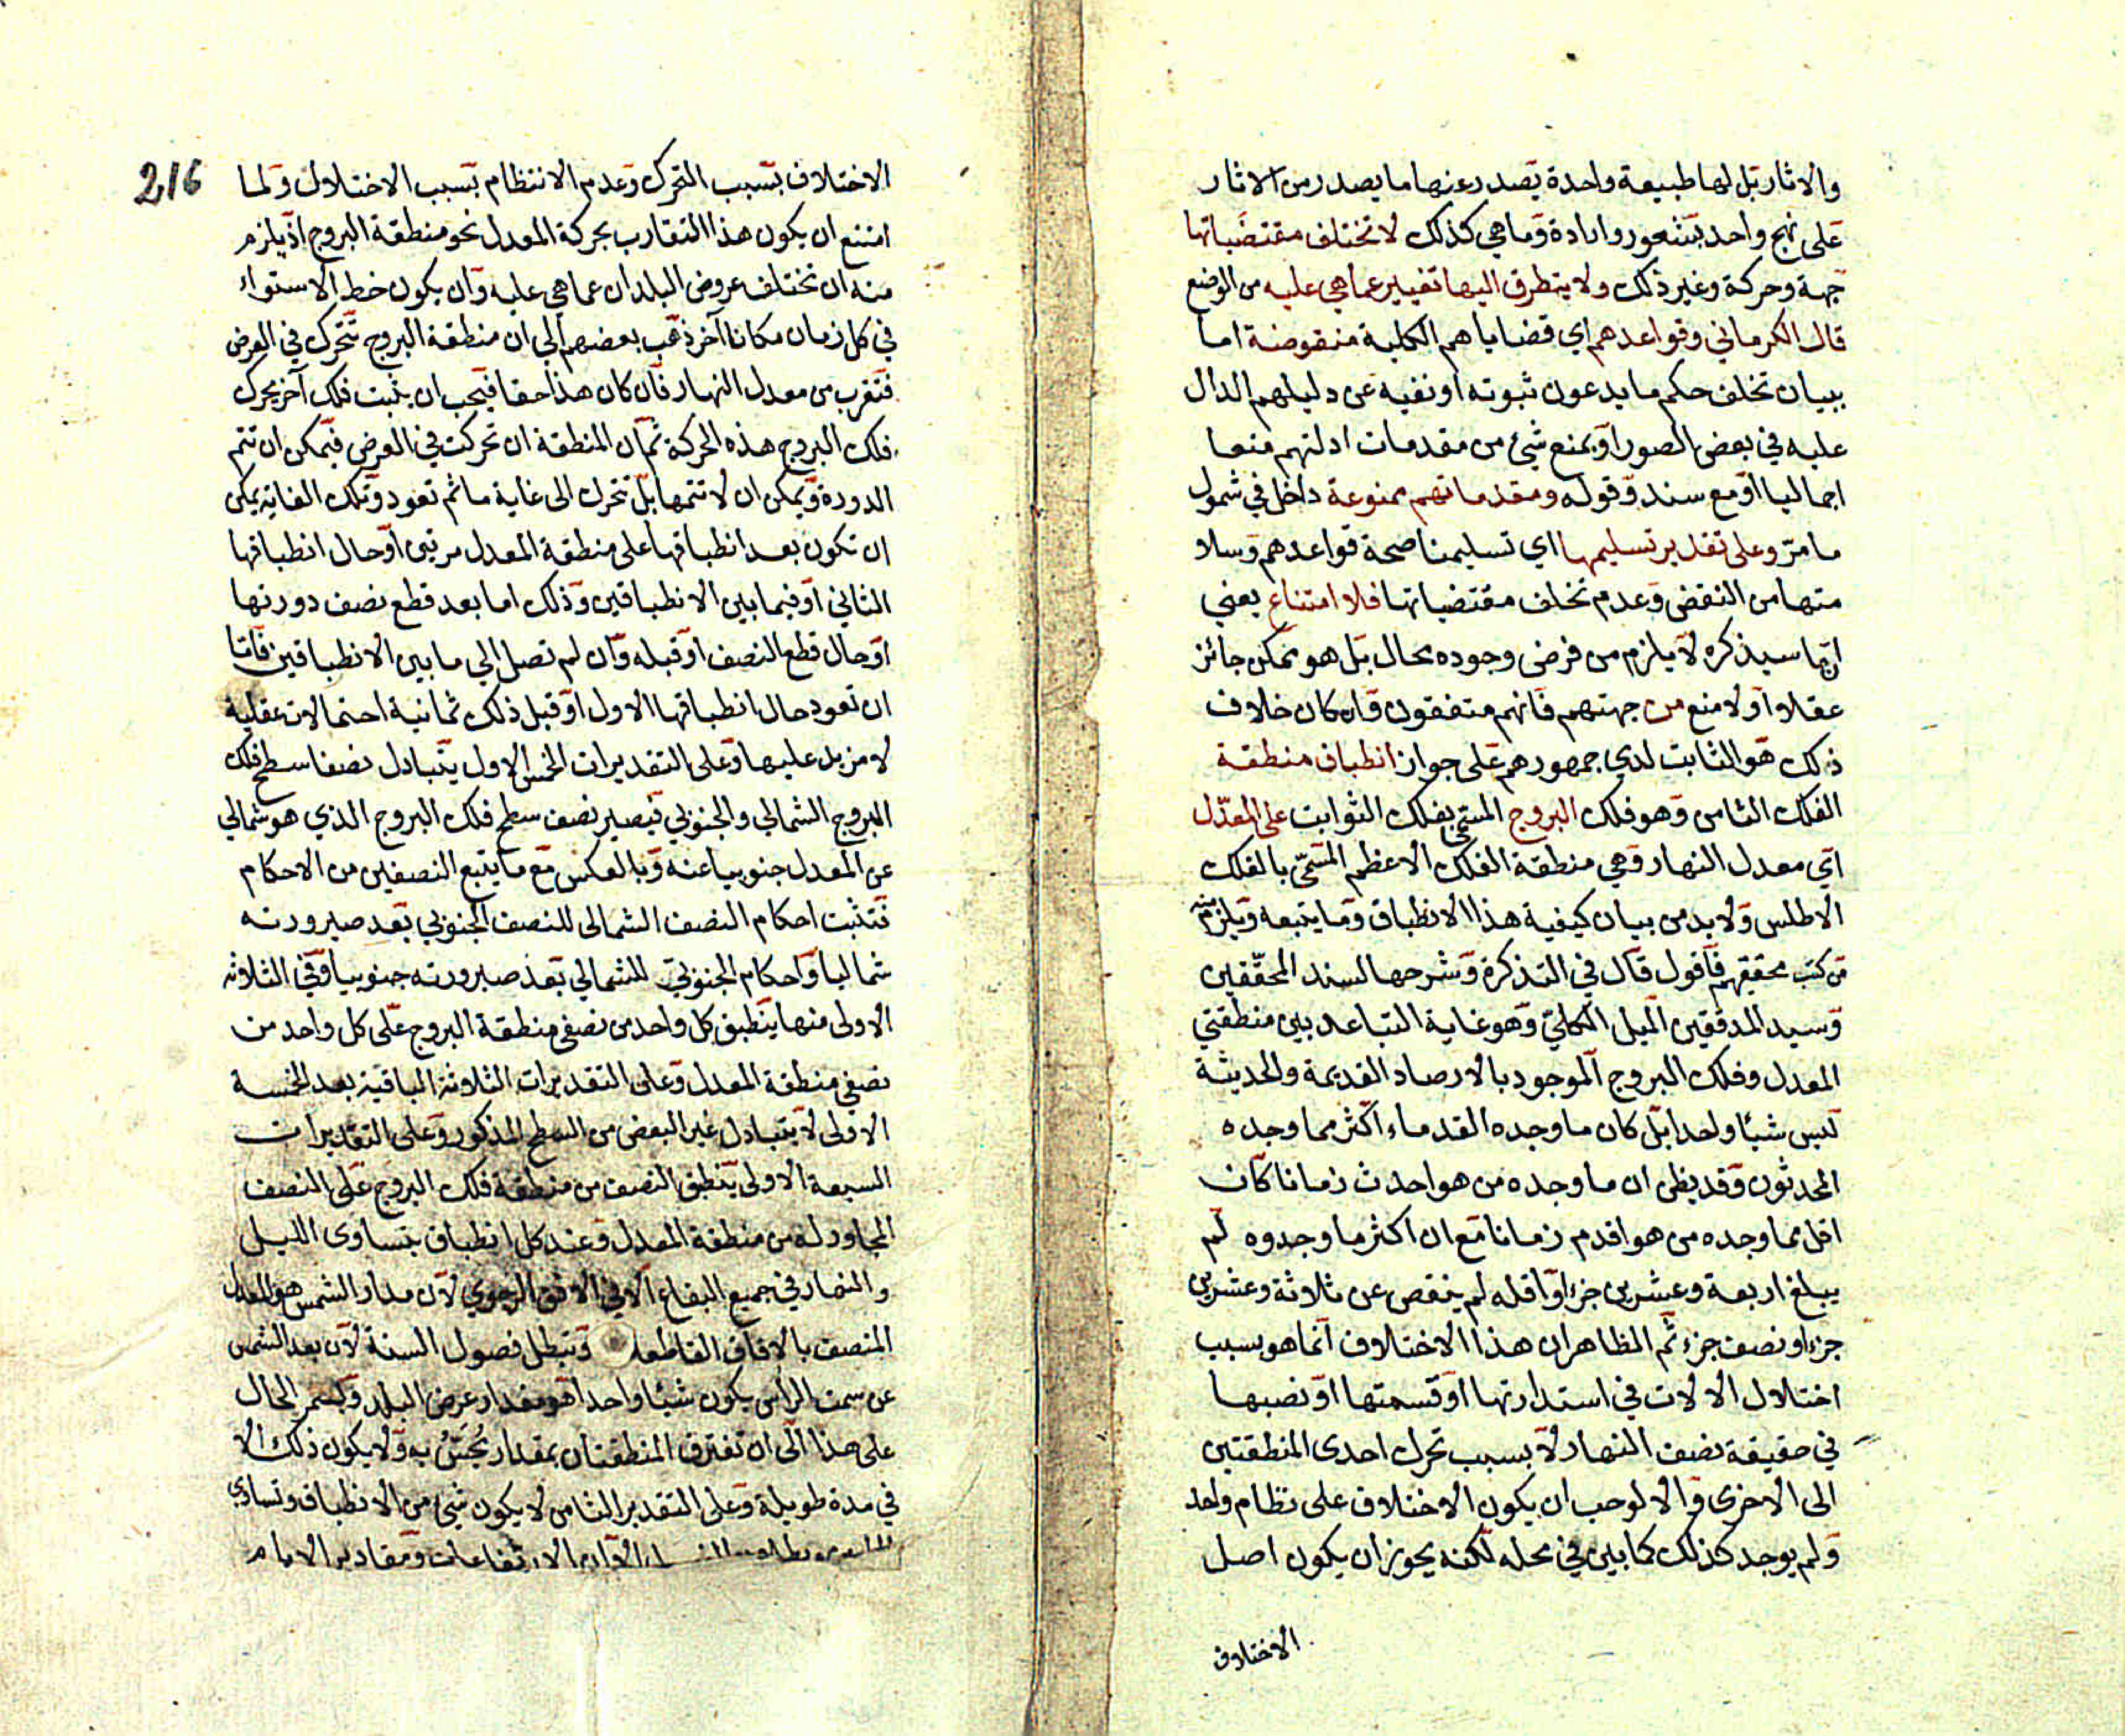 والاثار بل لها طبيعة واحدة يصدر عنها ما يصدر من الاثار
على نهج واحد بشعور وارادة وما هي كذلك لا تختلف مقتضياتها
جهة وحركة وغير ذلك ولا يتطرق اليها تغيير عما هي عليه من الوضع
قال الكرماني وقواعدهم اي قضاياهم الكلية منقوضة اما
ببيان تخلف حكم ما يدعون ثبوته او نفيه عن دليلهم الدال
عليه في بعض الصور او بمنع شئ من مقدمات ادلتهم منعا
اجماليا او مع سند وقوله ومقدماتهم ممنوعة داخل في شمول
ما مر وعلى تقدير تسليمها اي تسليمنا صحة قواعدهم وسلا
متها من النقض وعدم تخلف مقتضياتها فلا امتناع يعني
ان ما سيذكره لا يلزم من فرض وجوده محال بل هو ممكن جائز
عقلا او لا منع من جهتهم فانهم متفقون وان كان خلاف
ذلك هو الثابت لدي جمهورهم على جواز انطباق منطقة
الفلك الثامن وهو فلك البروج المسمى بفلك الثوابت على المعدل
اي معدل النهار وهي منطقة الفلك الاعظم المسمى بالفلك
الاطلس ولا بد من بيان كيفية هذا الانطباق وما يتبعه ويلزم منه
من كتب محققيهم فاقول قال في التذكرة وشرحها لسند المحققين
وسيد المدققين الميل الكلي وهو غاية التباعد بين منطقتي
المعدل وفلك البروج الموجود بالارصاد القديمة والحديثة
ليس شيئا واحدا بل كان ما وجده القدماء اكثر مما وجده
المحدثون وقد يظن ان ما وجده من هو احدث زمانا كان
اقل مما وجده من هو اقدم زمانا مع ان اكثر ما وجدوه لم
يبلغ اربعة وعشرين جزءا واقله لم ينقص عن ثلاثة وعشرين
جزءا ونصف جزء ثم الظاهر ان هذا الاختلاف انما هو بسبب
اختلال الالات في استدارتها او قسمتها او نصبها
في حقيقة نصف النهار لا بسبب تحرك احدى المنطقتين
الى الاخرى والا لوجب ان يكون الاختلاف على نظام واحد
ولم يوجد كذلك كما بين في محله لكنه يجوز ان يكون اصل
الاختلاف
216
الاختلاف بسبب التحرك وعدم الانتظام بسبب الاختلال ولما
امتنع ان يكون هذا التقارب بحركة المعدل نحو منطقة البروج اذ يلزم
منه ان تختلف عروض البلدان عما هي عليه وان يكون خط الاستواء
في كل زمان مكانا آخر ذهب بعضهم الي ان منطقة البروج تتحرك في العرض
فتقرب من معدل النهار فان كان هذا حقا فيجب ان يثبت فلك آخر يحرك
فلك البروج هذه الحركة ثم ان المنطقة ان تحركت في العرض فيمكن ان تتم
الدورة ويمكن ان لا تتمها بل تتحرك الى غاية ما ثم تعود وتلك الغاية يمكن
ان تكون بعد انطباقها على منطقة المعدل مرتين او حال انطباقها
الثاني او فيما بين الانطباقين وذلك اما بعد قطع نصف دورتها
او حال قطع النصف او قبله وان لم تصل الي ما بين الانطباقين فاما
ان تعود حال انطباقها الاول او قبل ذلك ثمانية احتمالات عقلية
لا مزيد عليها وعلى التقديرات الخمس الاول يتبادل نصفا سطح فلك
البروج الشمالي والجنوبي فيصير نصف سطح فلك البروج الذي هو شمالي
عن المعدل جنوبيا عنه وبالعكس مع ما يتبع النصفين من الاحكام
فتثبت احكام النصف الشمالى للنصف الجنوبي بعد صيرورته
شماليا واحكام الجنوبي للشمالي بعد صيرورته جنوبيا وفي الثلاثه
الاولى منها ينطبق كل واحد من نصفي منطقة البروج على كل واحد من
نصفي منطقة المعدل وعلى التقديرات الثلاثة الباقية بعد الخمسة
الاولى لا يتبادل غير البعض من السطح المذكور وعلى التقديرات
السبعة الاولى ينطبق النصف من منطقة فلك البروج على النصف
المجاور له من منطقة المعدل وعند كل انطباق يتساوى الليل
والنهار في جميع البقاع الا في الافق الرحوي لان مدار الشمس هو المعدل
المنصف بالافاق القاطعة وتبطل فصول السنة لان بعد الشمس
عن سمت الراس يكون شيئا واحدا هو مقدار عرض البلد ويستمر الحال
على هذا الى ان تفترق المنطقتان بمقدار يحس به ولا يكون ذلك الا
في مدة طويلة وعلى التقدير الثامن لا يكون شئ من الانطباق وتساوي
الارتفاعات ومقادير الايام